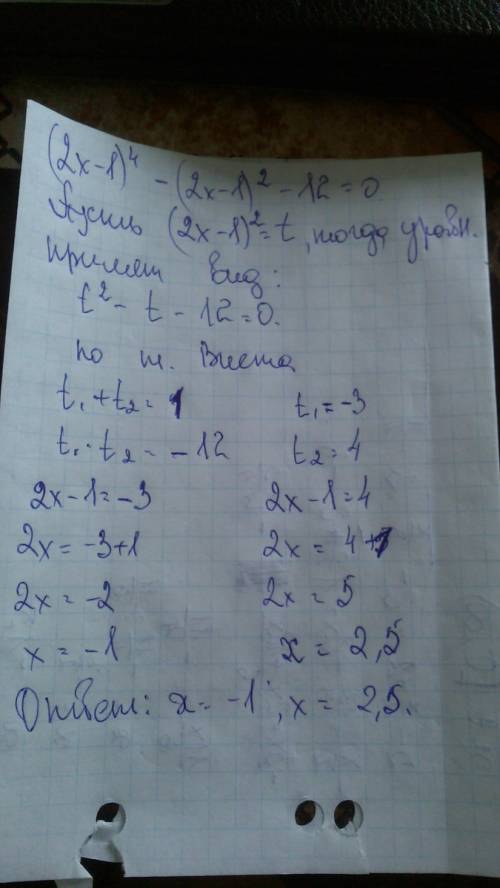 (2x-1)⁴ - (2x-1)² - 12 = 0.
Пусть (2x-1)² = t, тогда уравн.
примет вид:
t² - t - 12 = 0.
по т. Виета
t₁ + t₂ = 1 t₁ = -3
t₁ · t₂ = -12 t₂ = 4
2x - 1 = -3 2x - 1 = 4
2x = -3+1 2x = 4+1
2x = -2 2x = 5
x = -1 x = 2,5
Ответ: x = -1, x = 2,5.